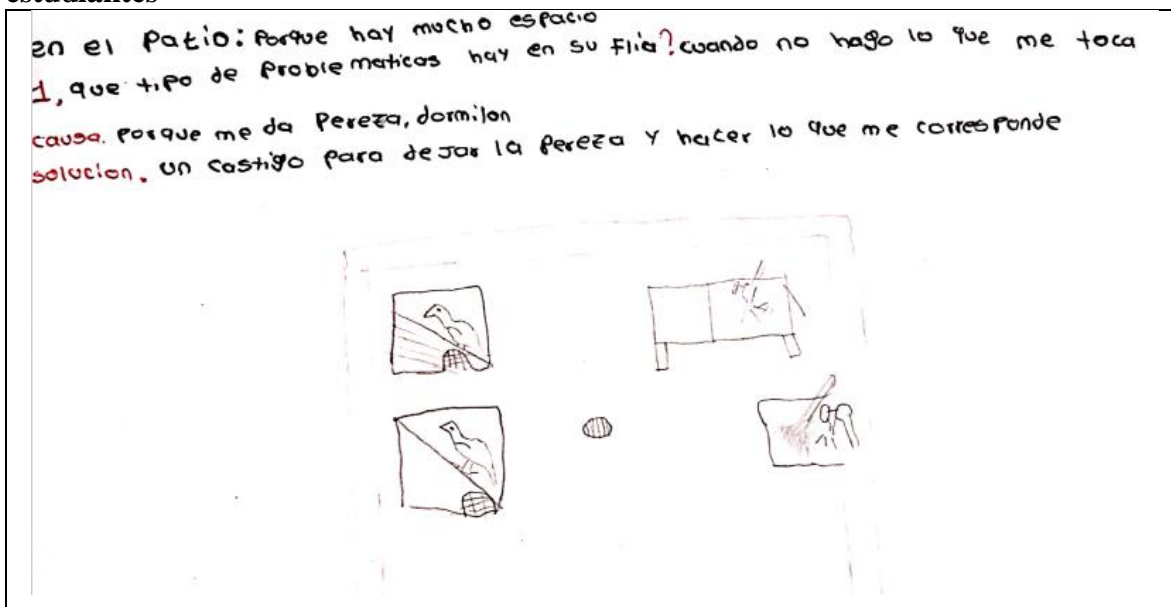 estudiantes
en el Patio: Porque hay mucho espacio
1, que tipo de Problematicas hay en su Flia? cuando no hago lo que me toca
causa. Porque me da Pereza, dormilon
solucion. un castigo para dejar la Pereza y hacer lo que me corresponde